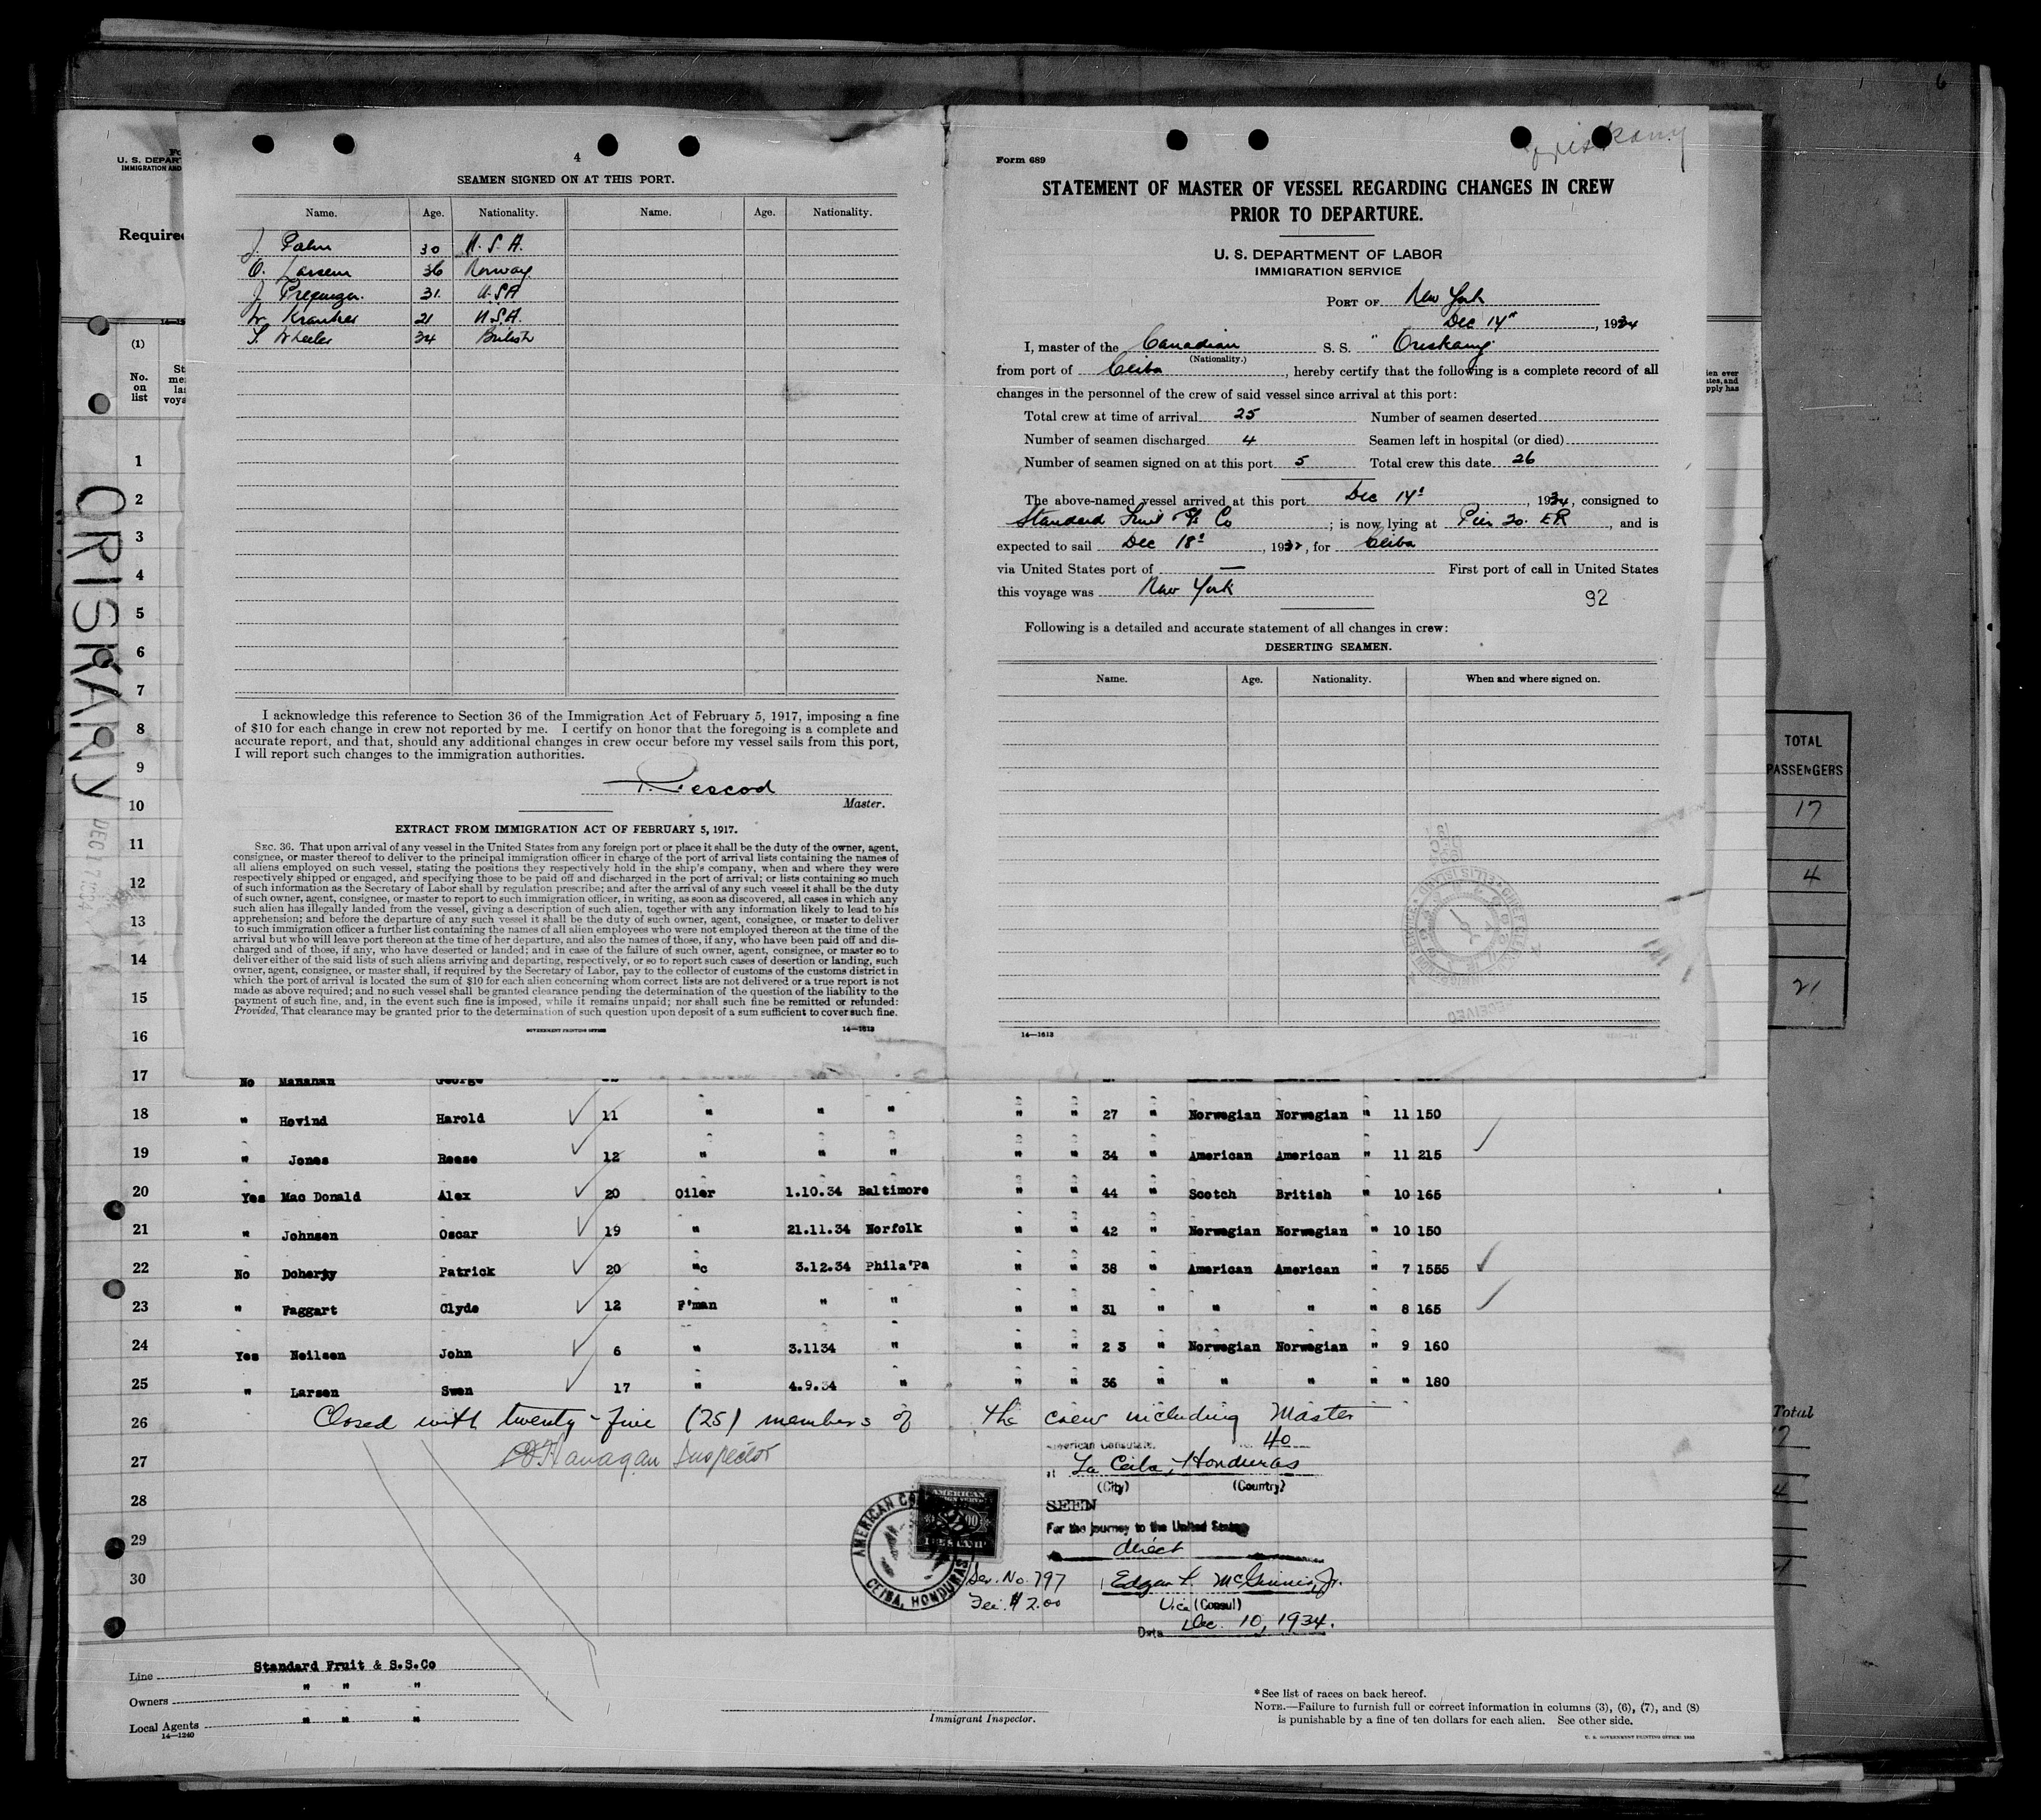 6
4
SEAMEN SIGNED ON AT THIS PORT.
Name. Age. Nationality. Name. Age. Nationality.
J. Palm 30 U.S.A.
O. Larsen 36 Norway
J. 31. U.S.A.
W. 21 U.S.A.
S. Wheeler 34 British
I acknowledge this reference to Section 36 of the Immigration Act of February 5, 1917, imposing a fine
of $10 for each change in crew not reported by me. I certify on honor that the foregoing is a complete and
accurate report, and that, should any additional changes in crew occur before my vessel sails from this port,
I will report such changes to the immigration authorities.
Master.
EXTRACT FROM IMMIGRATION ACT OF FEBRUARY 5, 1917.
SEC. 36. That upon arrival of any vessel in the United States from any foreign port or place it shall be the duty of the owner, agent,
consignee, or master thereof to deliver to the principal immigration officer in charge of the port of arrival lists containing the names of
all aliens employed on such vessel, stating the positions they respectively hold in the ship's company, when and where they were
respectively shipped or engaged, and specifying those to be paid off and discharged in the port of arrival; or lists containing so much
of such information as the Secretary of Labor shall by regulation prescribe; and after the arrival of any such vessel it shall be the duty
of such owner, agent, consignee, or master to report to such immigration officer, in writing, as soon as discovered, all cases in which any
such alien has illegally landed from the vessel, giving a description of such alien, together with any information likely to lead to his
apprehension; and before the departure of any such vessel it shall be the duty of such owner, agent, consignee, or master to deliver
to such immigration officer a further list containing the names of all alien employees who were not employed thereon at the time of the
arrival but who will leave port thereon at the time of her departure, and also the names of those, if any, who have been paid off and dis-
charged and of those, if any, who have deserted or landed; and in case of the failure of such owner, agent, consignee, or master so to
deliver either of the said lists of such aliens arriving and departing, respectively, or so to report such cases of desertion or landing, such
owner, agent, consignee, or master shall, if required by the Secretary of Labor, pay to the collector of customs of the customs district in
which the port of arrival is located the sum of $10 for each alien concerning whom correct lists are not delivered or a true report is not
made as above required; and no such vessel shall be granted clearance pending the determination of the question of the liability to the
payment of such fine, and, in the event such fine is imposed, while it remains unpaid; nor shall such fine be remitted or refunded:
Provided, That clearance may be granted prior to the determination of such question upon deposit of a sum sufficient to cover such fine.
GOVERNMENT PRINTING OFFICE 14—1613
Oriskany
Form 689
STATEMENT OF MASTER OF VESSEL REGARDING CHANGES IN CREW
PRIOR TO DEPARTURE.
U. S. DEPARTMENT OF LABOR
IMMIGRATION SERVICE
PORT OF New York
Dec 14", 1934
I, master of the Canadian S. S. " Oriskany
(Nationality.)
from port of Ceiba, hereby certify that the following is a complete record of all
changes in the personnel of the crew of said vessel since arrival at this port:
Total crew at time of arrival 25 Number of seamen deserted
Number of seamen discharged 4 Seamen left in hospital (or died)
Number of seamen signed on at this port 5 Total crew this date 26
The above-named vessel arrived at this port Dec 14", 1934, consigned to
Standard Fruit Co; is now lying at Pier 20. ER, and is
expected to sail Dec 18", 193, for Ceiba
via United States port of — First port of call in United States
this voyage was New York
92
Following is a detailed and accurate statement of all changes in crew:
DESERTING SEAMEN.
Name. Age. Nationality. When and where signed on.
14—1613
U. S. DEPAR
IMMIGRATION AND
Require
(1)
No. on list
ORISKANY
DEC 17 1934
1
2
3
4
5
6
7
8
9
10
11
12
13
14
15
16
17 No Manahan George
18 " Hovind Harold 11 " " " " " 27 " Norwegian Norwegian " 11 150
19 " Jones Reese 12 " " " " " 34 " American American " 11 215
20 Yes Mac Donald Alex 20 Oiler 1.10.34 Baltimore " " 44 " Scotch British " 10 165
21 " Johnsen Oscar 19 " 21.11.34 Norfolk " " 42 " Norwegian Norwegian " 10 150
22 No Doherty Patrick 20 "c 3.12.34 Phila'Pa " " 38 " American American " 7 1555
23 " Faggart Clyde 12 F'man " " " " 31 " " " " 8 165
24 Yes Neilsen John 6 " 3.1134 " " " 2 3 " Norwegian Norwegian " 9 160
25 " Larsen Swen 17 " 4.9.34 " " " 36 " " " " " 180
26 Closed with twenty-five (25) members of the crew including Master
27 Flanagan Inspector
28
29
30
American Consulate. No. 40
at La Ceiba, Honduras
(City) (Country)
SEEN
For the journey to the United States
direct
Edgar L. McGinnis, Jr.
Vice (Consul)
Date Dec. 10, 1934.
AMERICAN CO
CEIBA, HONDURAS
AMERICAN
Ser. No. 797
Fee: $2.00
Line Standard Fruit & S.S.Co
Owners " " "
Local Agents " " "
14—1240
Immigrant Inspector.
*See list of races on back hereof.
NOTE.—Failure to furnish full or correct information in columns (3), (6), (7), and (8)
is punishable by a fine of ten dollars for each alien. See other side.
TOTAL
PASSENGERS
17
4
21
Total